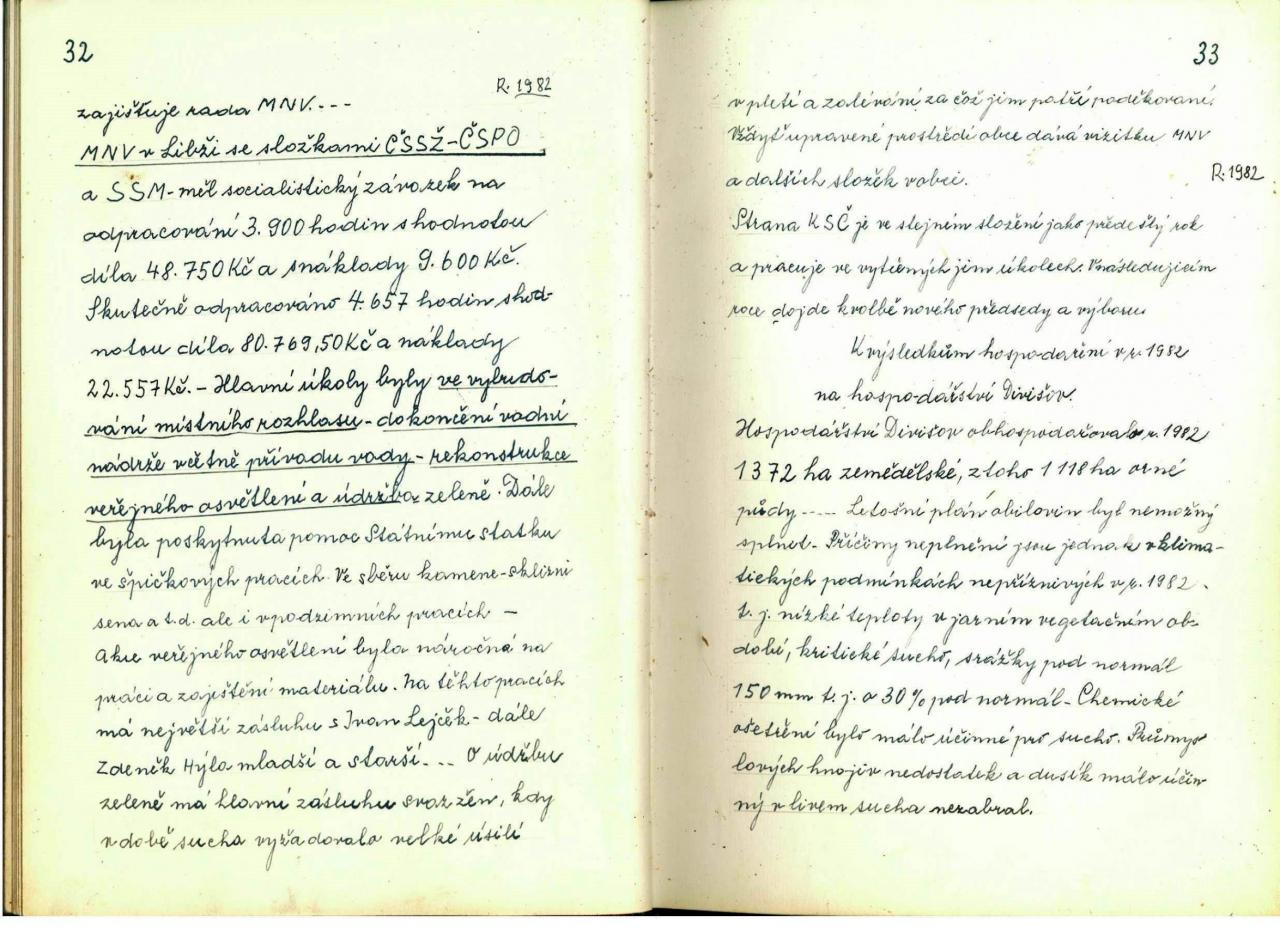 32
R. 1982
zajišťuje rada MNV.---
MNV v Libži se složkami ČSSŽ-ČSPO
a SSM-měl socialistický závazek na
odpracování 3.900 hodin s hodnotou
díla 48.750 Kč a snáklady 9.600 Kč.
Skutečně odpracováno 4.657 hodin shod-
notou díla 80.769,50 Kč a náklady
22.557 Kč. - Hlavní úkoly byly ve vybudo-
vání místního rozhlasu - dokončení vodní
nádrže včetně přívodu vody - rekonstrukce
veřejného osvětlení a údržba zeleně. Dále
byla poskytnuta pomoc Státnímu statku
ve špičkových pracích. Ve sběru kamene-sklizni
sena a t.d. ale i v podzimních pracích -
Akce veřejného osvětlení byla náročná na
práci a zajištění materiálu. Na těchto pracích
má největší zásluhu s Ivan Lejček - dále
Zdeněk Hýla mladší a starší... O údržbu
zeleně má hlavní zásluhu svaz žen, kdy
v době sucha vyžadovalo velké úsilí
33
v pletí a zalévání, za čož jim patří poděkovaní.
Vždyť upravené prostředí obce dává vizitku MNV
a dalších složek v obci.
R. 1982
Strana KSČ je ve stejném složení jako předešlý rok
a pracuje ve vytíčených jim úkolech. V následujícím
roce dojde k volbě nového předsedy a výboru.
K výsledkům hospodaření v r. 1982
na hospodářství Divišov.
Hospodářství Divišov obhospodařovalo r. 1982
1372 ha zemědělské, z toho 1118 ha orné
půdy ---- Letošní plán obilovin byl nemožný
splnet. Příčiny neplnění jsou jednak v klima-
tických podmínkách nepříznivých v r. 1982.
t.j. nízké teploty v jarním vegetačním ob-
dobí, kritické sucho, srážky pod normál
150 mm t.j. o 30% pod normál - Chemické
ošetření bylo málo účinné pro sucho. Průmys
lových hnojiv nedostatek a dusík málo účin-
ný v livem sucha nezabral.